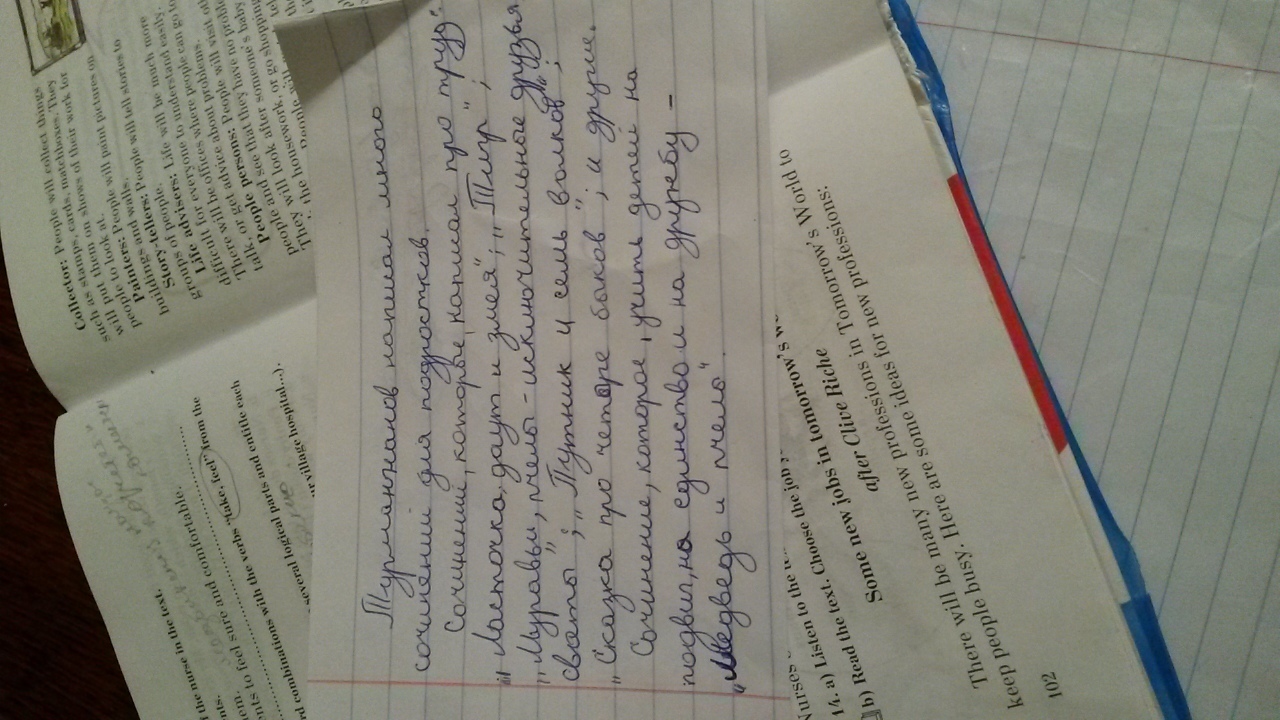 Collector: People will collect things
such as stamps, cards, matchboxes. They
will put them on shows of their work for
people to look at.
Painters: People will paint pictures on
buildings and walls.
Story-tellers: People will tell stories to
groups of people.
Life advisers: Life will be much more
difficult for everyone to understand easily.
There will be offices where people can go to
talk, or get advice about problems.
People persons: People will visit
people and see that they have no problems.
They will look after someone's baby,
the housework, or go shopping
the nurse in the text.
nts to feel sure and comfortable.
combinations with the verbs "take, feel" from the
several logical parts and entitle each
village hospital...).
Турманжанов написал много
сочинений для подростков.
Сочинений, которые написал про труд:
„Ласточка, даут и змея", „Тигр",
„Муравьи, пчелы - исключительные друзья
сваты"; „Путник и семь волков";
„Сказка про четыре баков"; и другие.
Сочинение, которое, учить детей на
подвиг, на единством и на дружбу -
„Медведь и пчело".
14. a) Listen to the text. Choose the job
b) Read the text.
Some new jobs in tomorrow's
after Clive Riche
There will be many new professions in Tomorrow's World to
keep people busy. Here are some ideas for new professions:
102